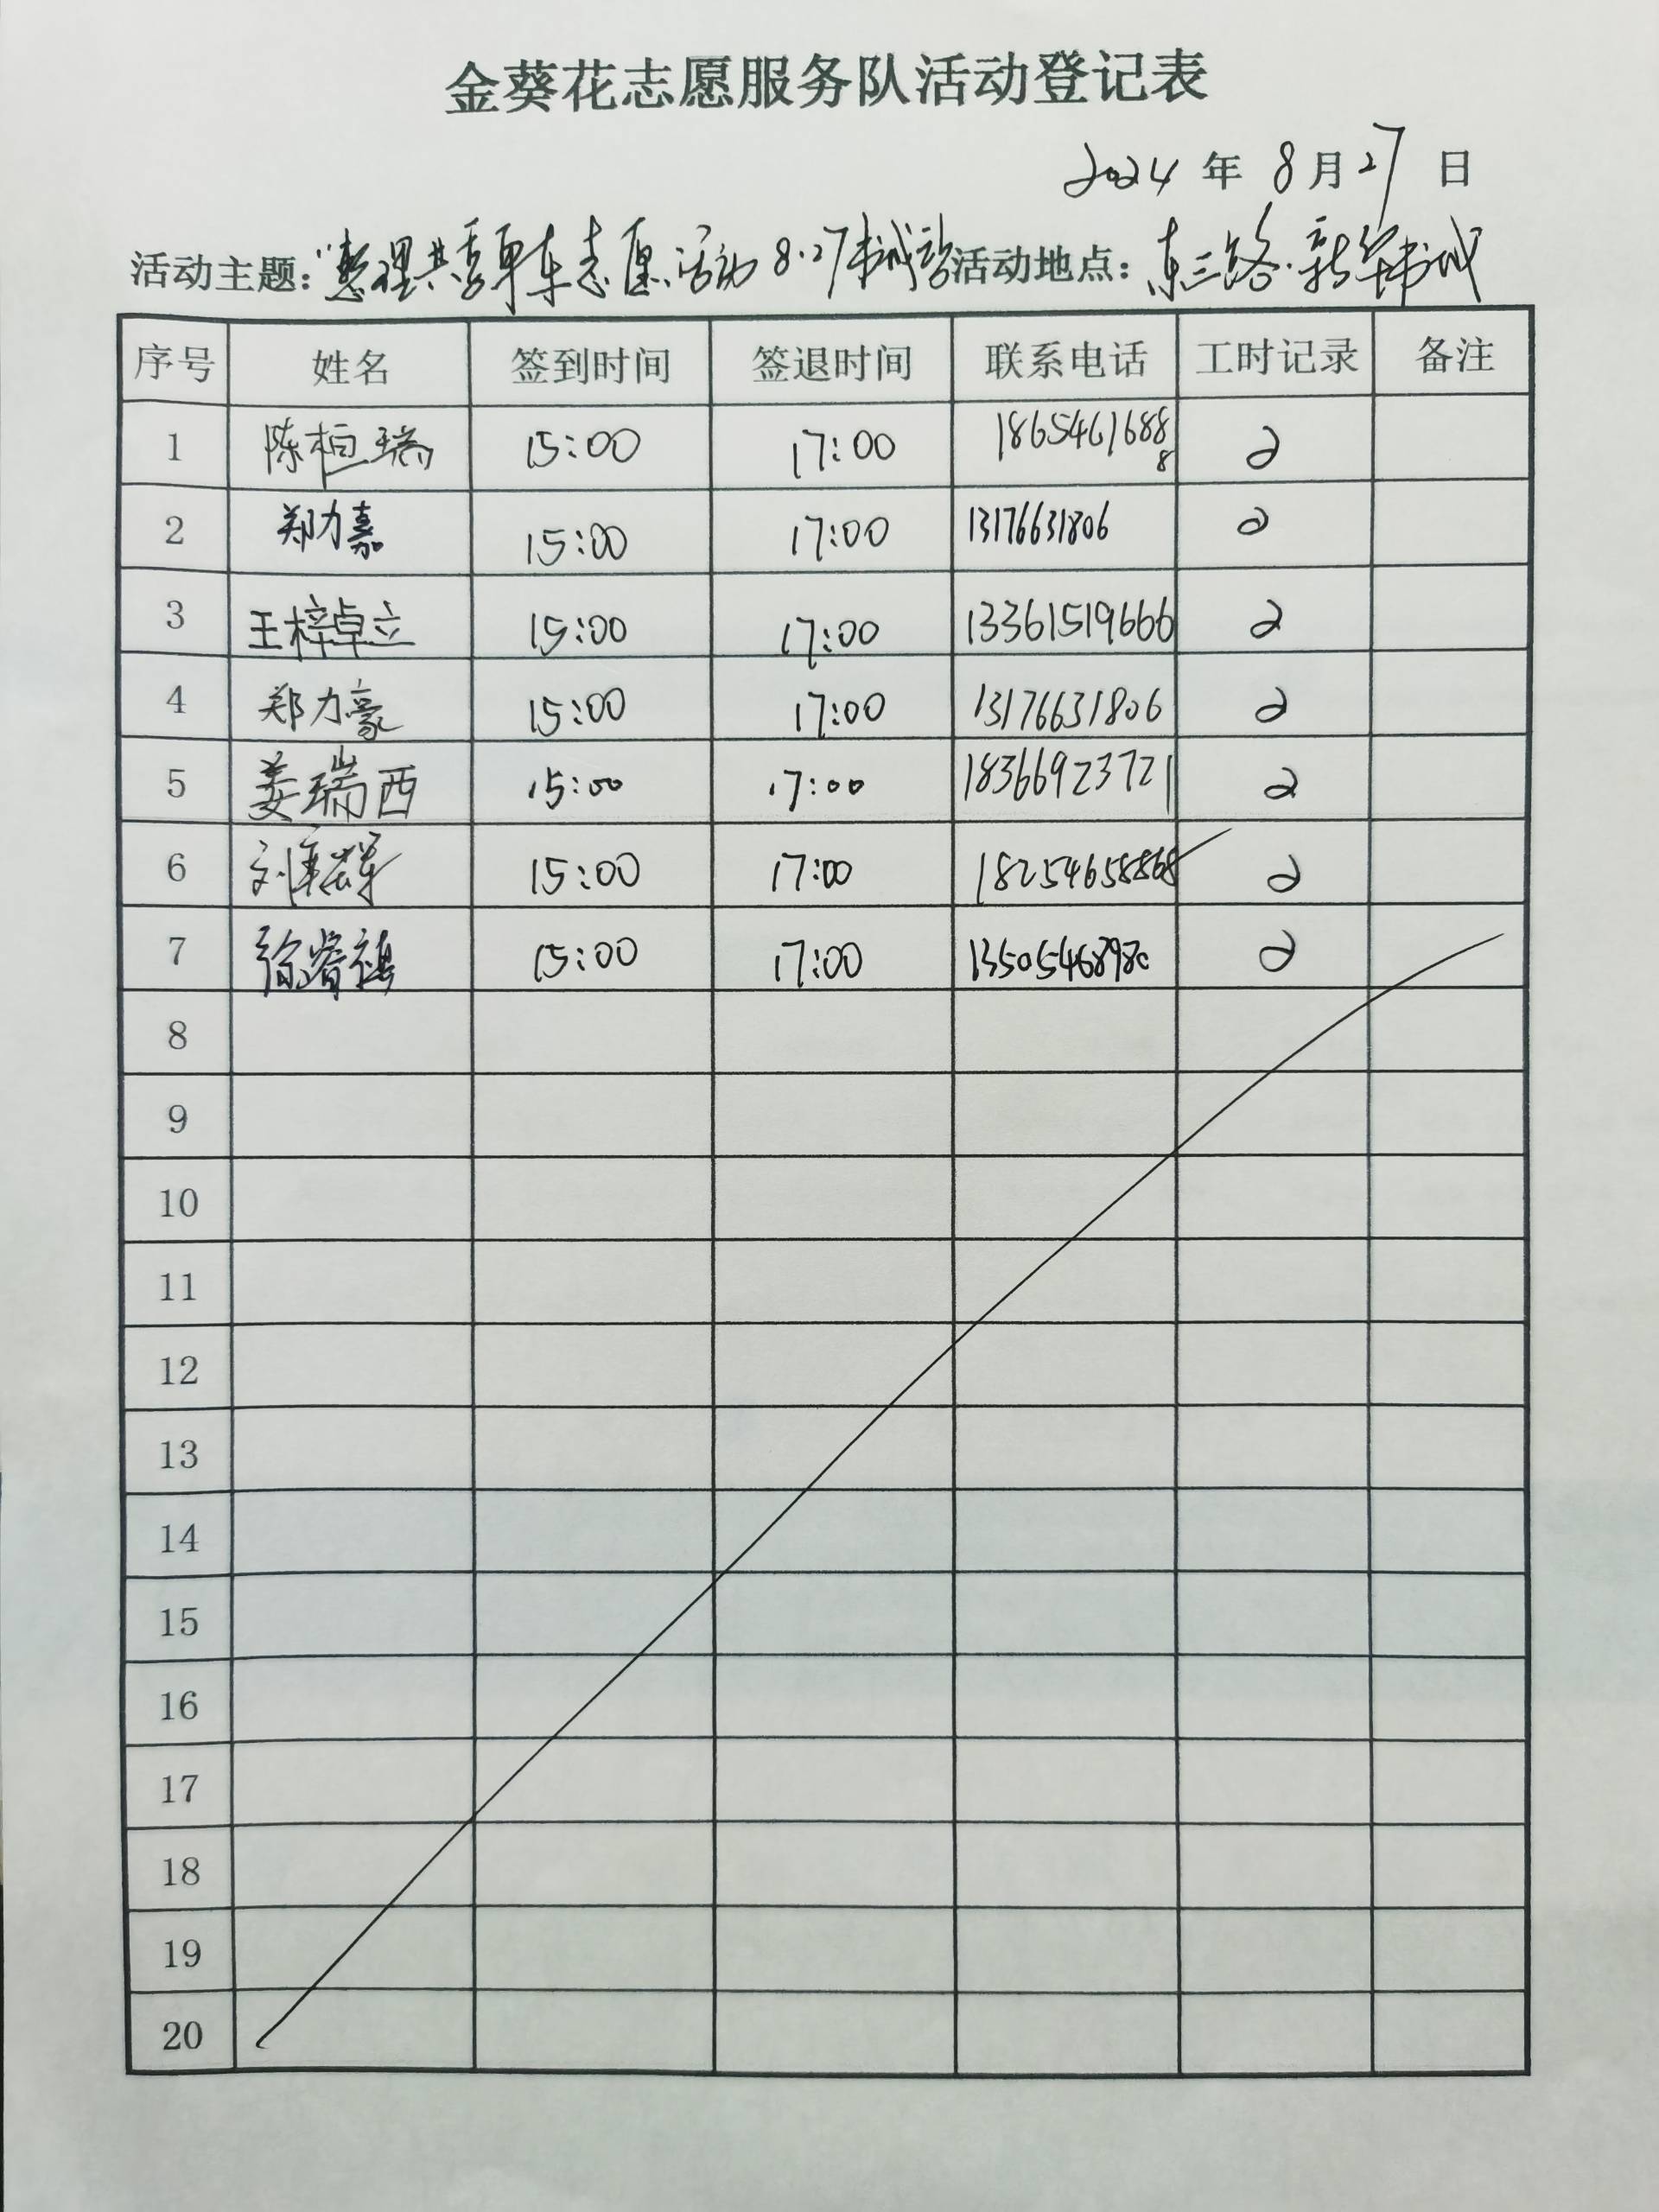 金葵花志愿服务队活动登记表
2024 年 8 月 27 日
活动主题：“整理共享单车志愿活动 8.27书城站 活动地点：东三路·新华书城
序号 姓名 签到时间 签退时间 联系电话 工时记录 备注
1 陈桓瑞 15:00 17:00 18654616888 2
2 郑力嘉 15:00 17:00 13176631806 2
3 王梓卓立 15:00 17:00 13361519666 2
4 郑力豪 15:00 17:00 13176631806 2
5 姜瑞西 15:00 17:00 18366923721 2
6 刘 15:00 17:00 2
7 徐睿祺 15:00 17:00 13505468980 2
8
9
10
11
12
13
14
15
16
17
18
19
20